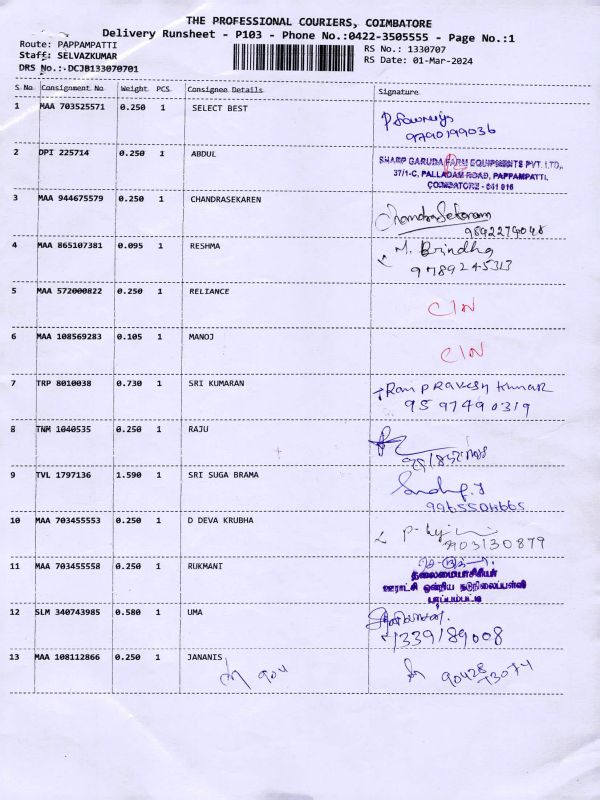 THE PROFESSIONAL COURIERS, COIMBATORE
Delivery Runsheet - P103 - Phone No.:0422-3505555 - Page No.:1
Route: PAPPAMPATTI
RS No.: 1330707
Staff: SELVAZKUMAR
RS Date: 01-Mar-2024
DRS No.:-DCJB133070701
S No Consignment No Weight PCS Consignee Details Signature
1 MAA 703525571 0.250 1 SELECT BEST
9790199036
2 DPI 225714 0.250 1 ABDUL
SHARP GARUDA FARM EQUIPMENTS PVT. LTD.,
37/1-C, PALLADAM ROAD, PAPPAMPATTI,
COIMBATORE - 641 016
3 MAA 944675579 0.250 1 CHANDRASEKAREN
Chandrasekaran
9892274048
4 MAA 865107381 0.095 1 RESHMA
M. Brindha
9789245313
5 MAA 572000822 0.250 1 RELIANCE
C/N
6 MAA 108569283 0.105 1 MANOJ
C/N
7 TRP 8010038 0.730 1 SRI KUMARAN
Ram PRAVESH KUMAR
9597490319
8 TNM 1040535 0.250 1 RAJU
9 TVL 1797136 1.590 1 SRI SUGA BRAMA
10 MAA 703455553 0.250 1 D DEVA KRUBHA
903130879
11 MAA 703455558 0.250 1 RUKMANI
தலைமையாசிரியர்
ஊராட்சி ஒன்றிய நடுநிலைப்பள்ளி
பாப்பம்பட்டி
12 SLM 340743985 0.580 1 UMA
7339189008
13 MAA 108112866 0.250 1 JANANIS
904
90428 73074